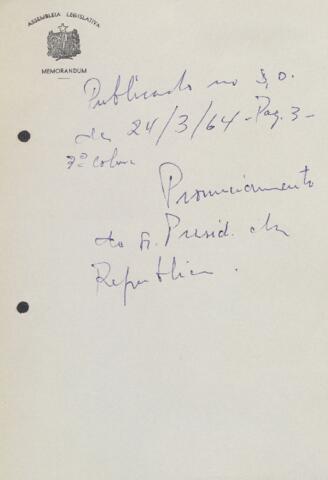 ASSEMBLEIA LEGISLATIVA
MEMORANDUM
Publicado no D.O.
de 24/3/64 - Pag. 3 -
7ª colun
Pronunciamento
do Sr. Presid. da
Republica.